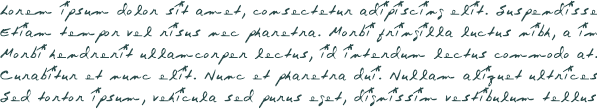 Lorem ipsum dolor sit amet, consectetur adipiscing elit. Suspendisse
Etiam tempor vel risus nec pharetra. Morbi fringilla luctus nibh, a in
Morbi hendrerit ullamcorper lectus, id interdum lectus commodo at.
Curabitur et nunc elit. Nunc et pharetra dui. Nullam aliquet ultrices
Sed tortor ipsum, vehicula sed purus eget, dignissim vestibulum tellus